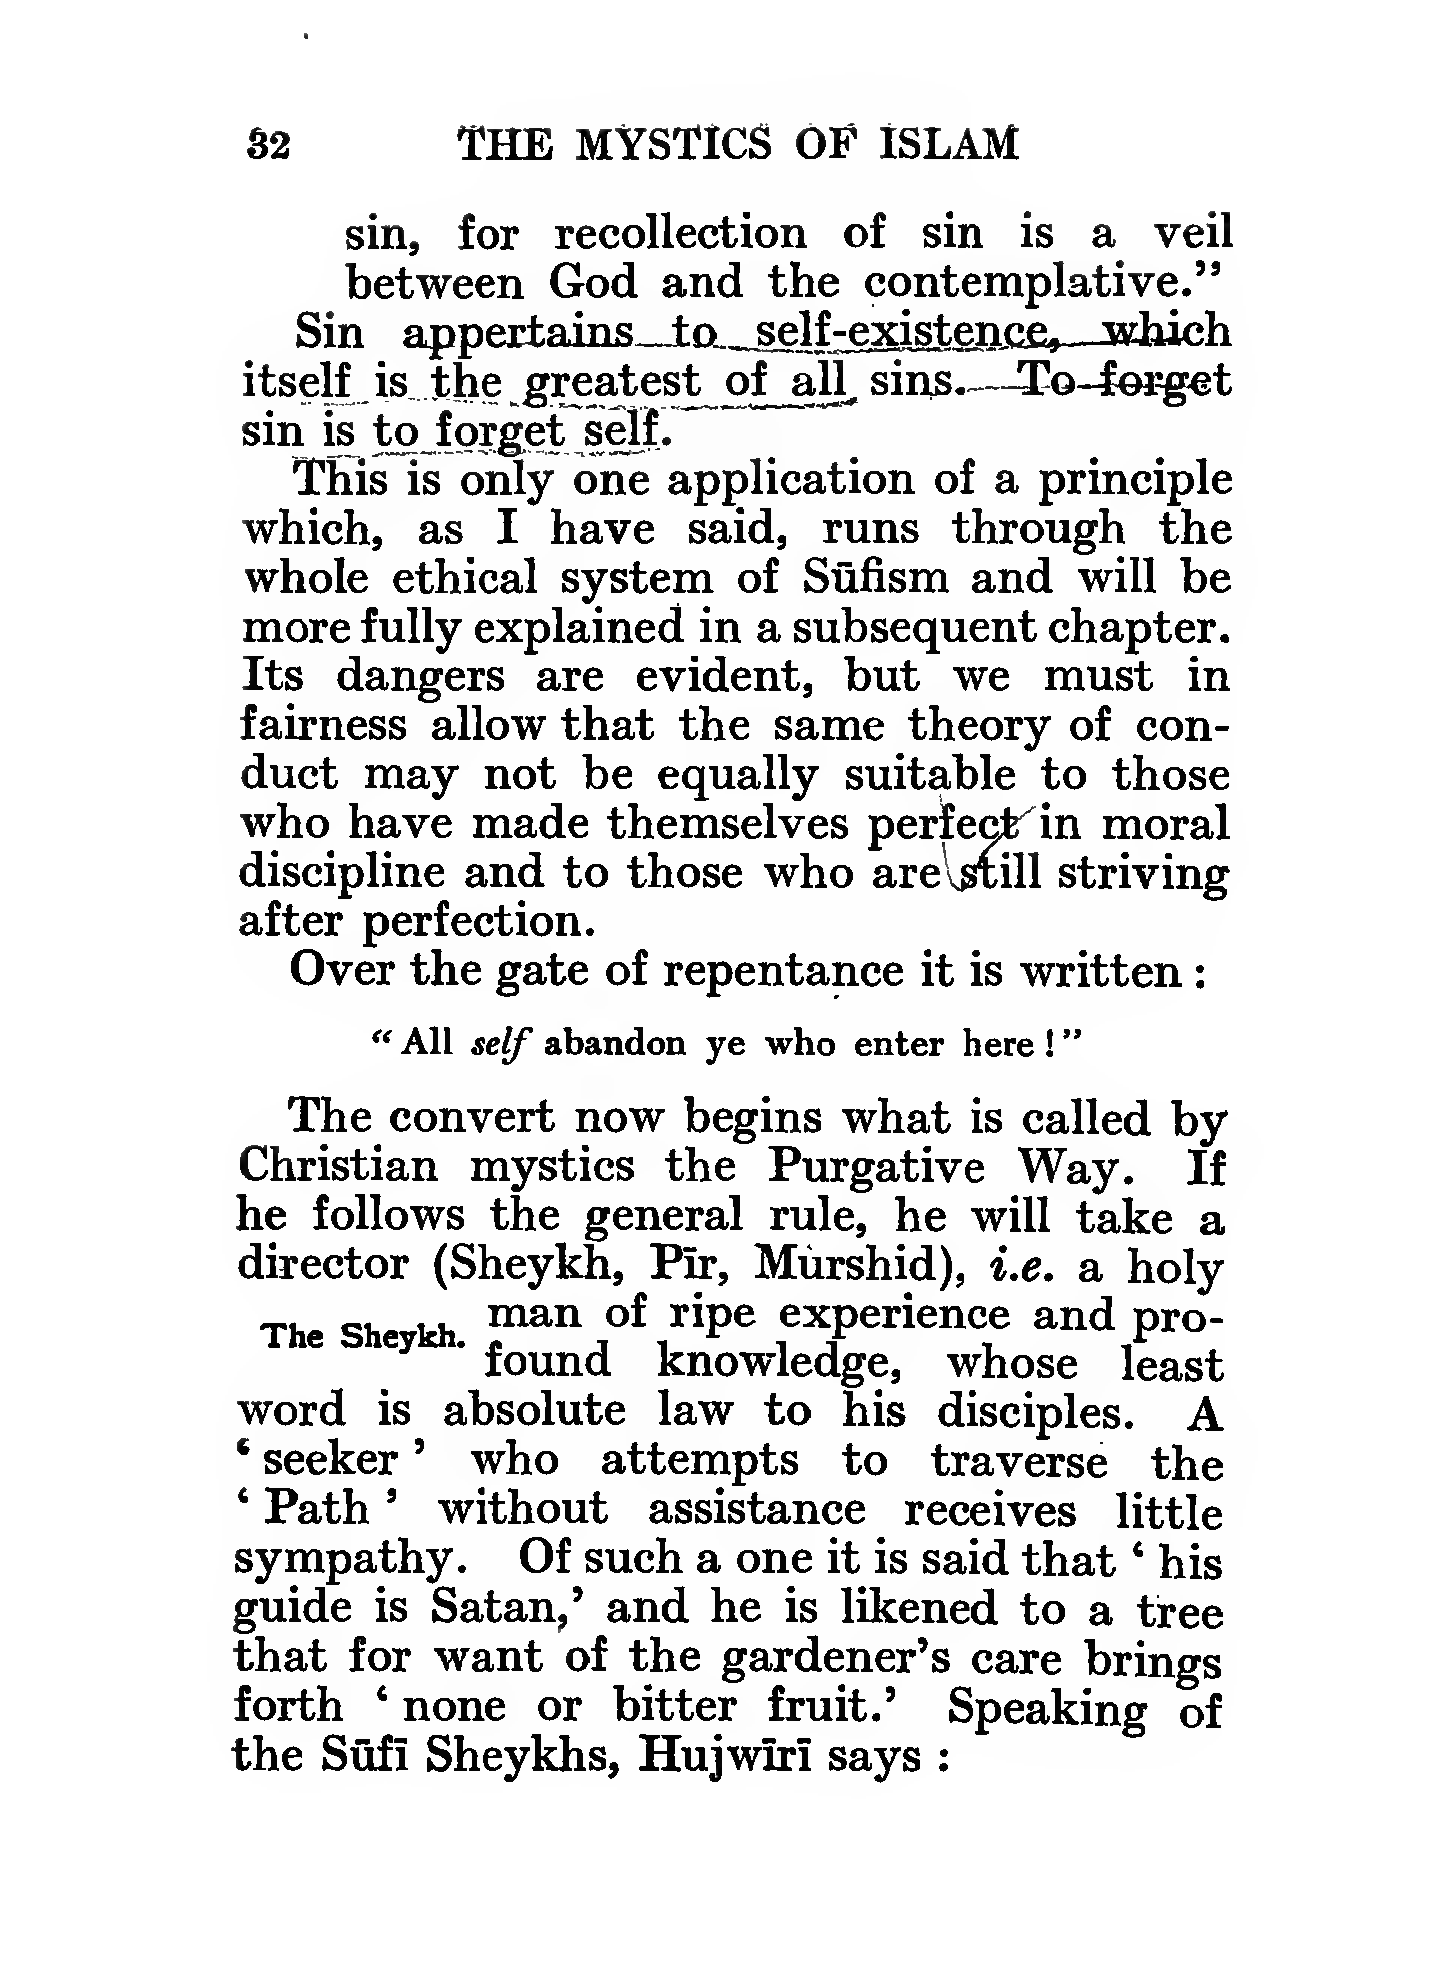 32 THE MYSTICS OF ISLAM
sin, for recollection of sin is a veil
between God and the contemplative.”
Sin appertains to self-existence, which
itself is the greatest of all sins. To forget
sin is to forget self.
This is only one application of a principle
which, as I have said, runs through the
whole ethical system of Sūfism and will be
more fully explained in a subsequent chapter.
Its dangers are evident, but we must in
fairness allow that the same theory of con-
duct may not be equally suitable to those
who have made themselves perfect in moral
discipline and to those who are still striving
after perfection.
Over the gate of repentance it is written :
“ All self abandon ye who enter here ! ”
The convert now begins what is called by
Christian mystics the Purgative Way. If
he follows the general rule, he will take a
director (Sheykh, Pīr, Murshid), i.e. a holy
man of ripe experience and pro-
The Sheykh.
found knowledge, whose least
word is absolute law to his disciples. A
‘ seeker ’ who attempts to traverse the
‘ Path ’ without assistance receives little
sympathy. Of such a one it is said that ‘ his
guide is Satan,’ and he is likened to a tree
that for want of the gardener’s care brings
forth ‘ none or bitter fruit.’ Speaking of
the Sūfī Sheykhs, Hujwīrī says :